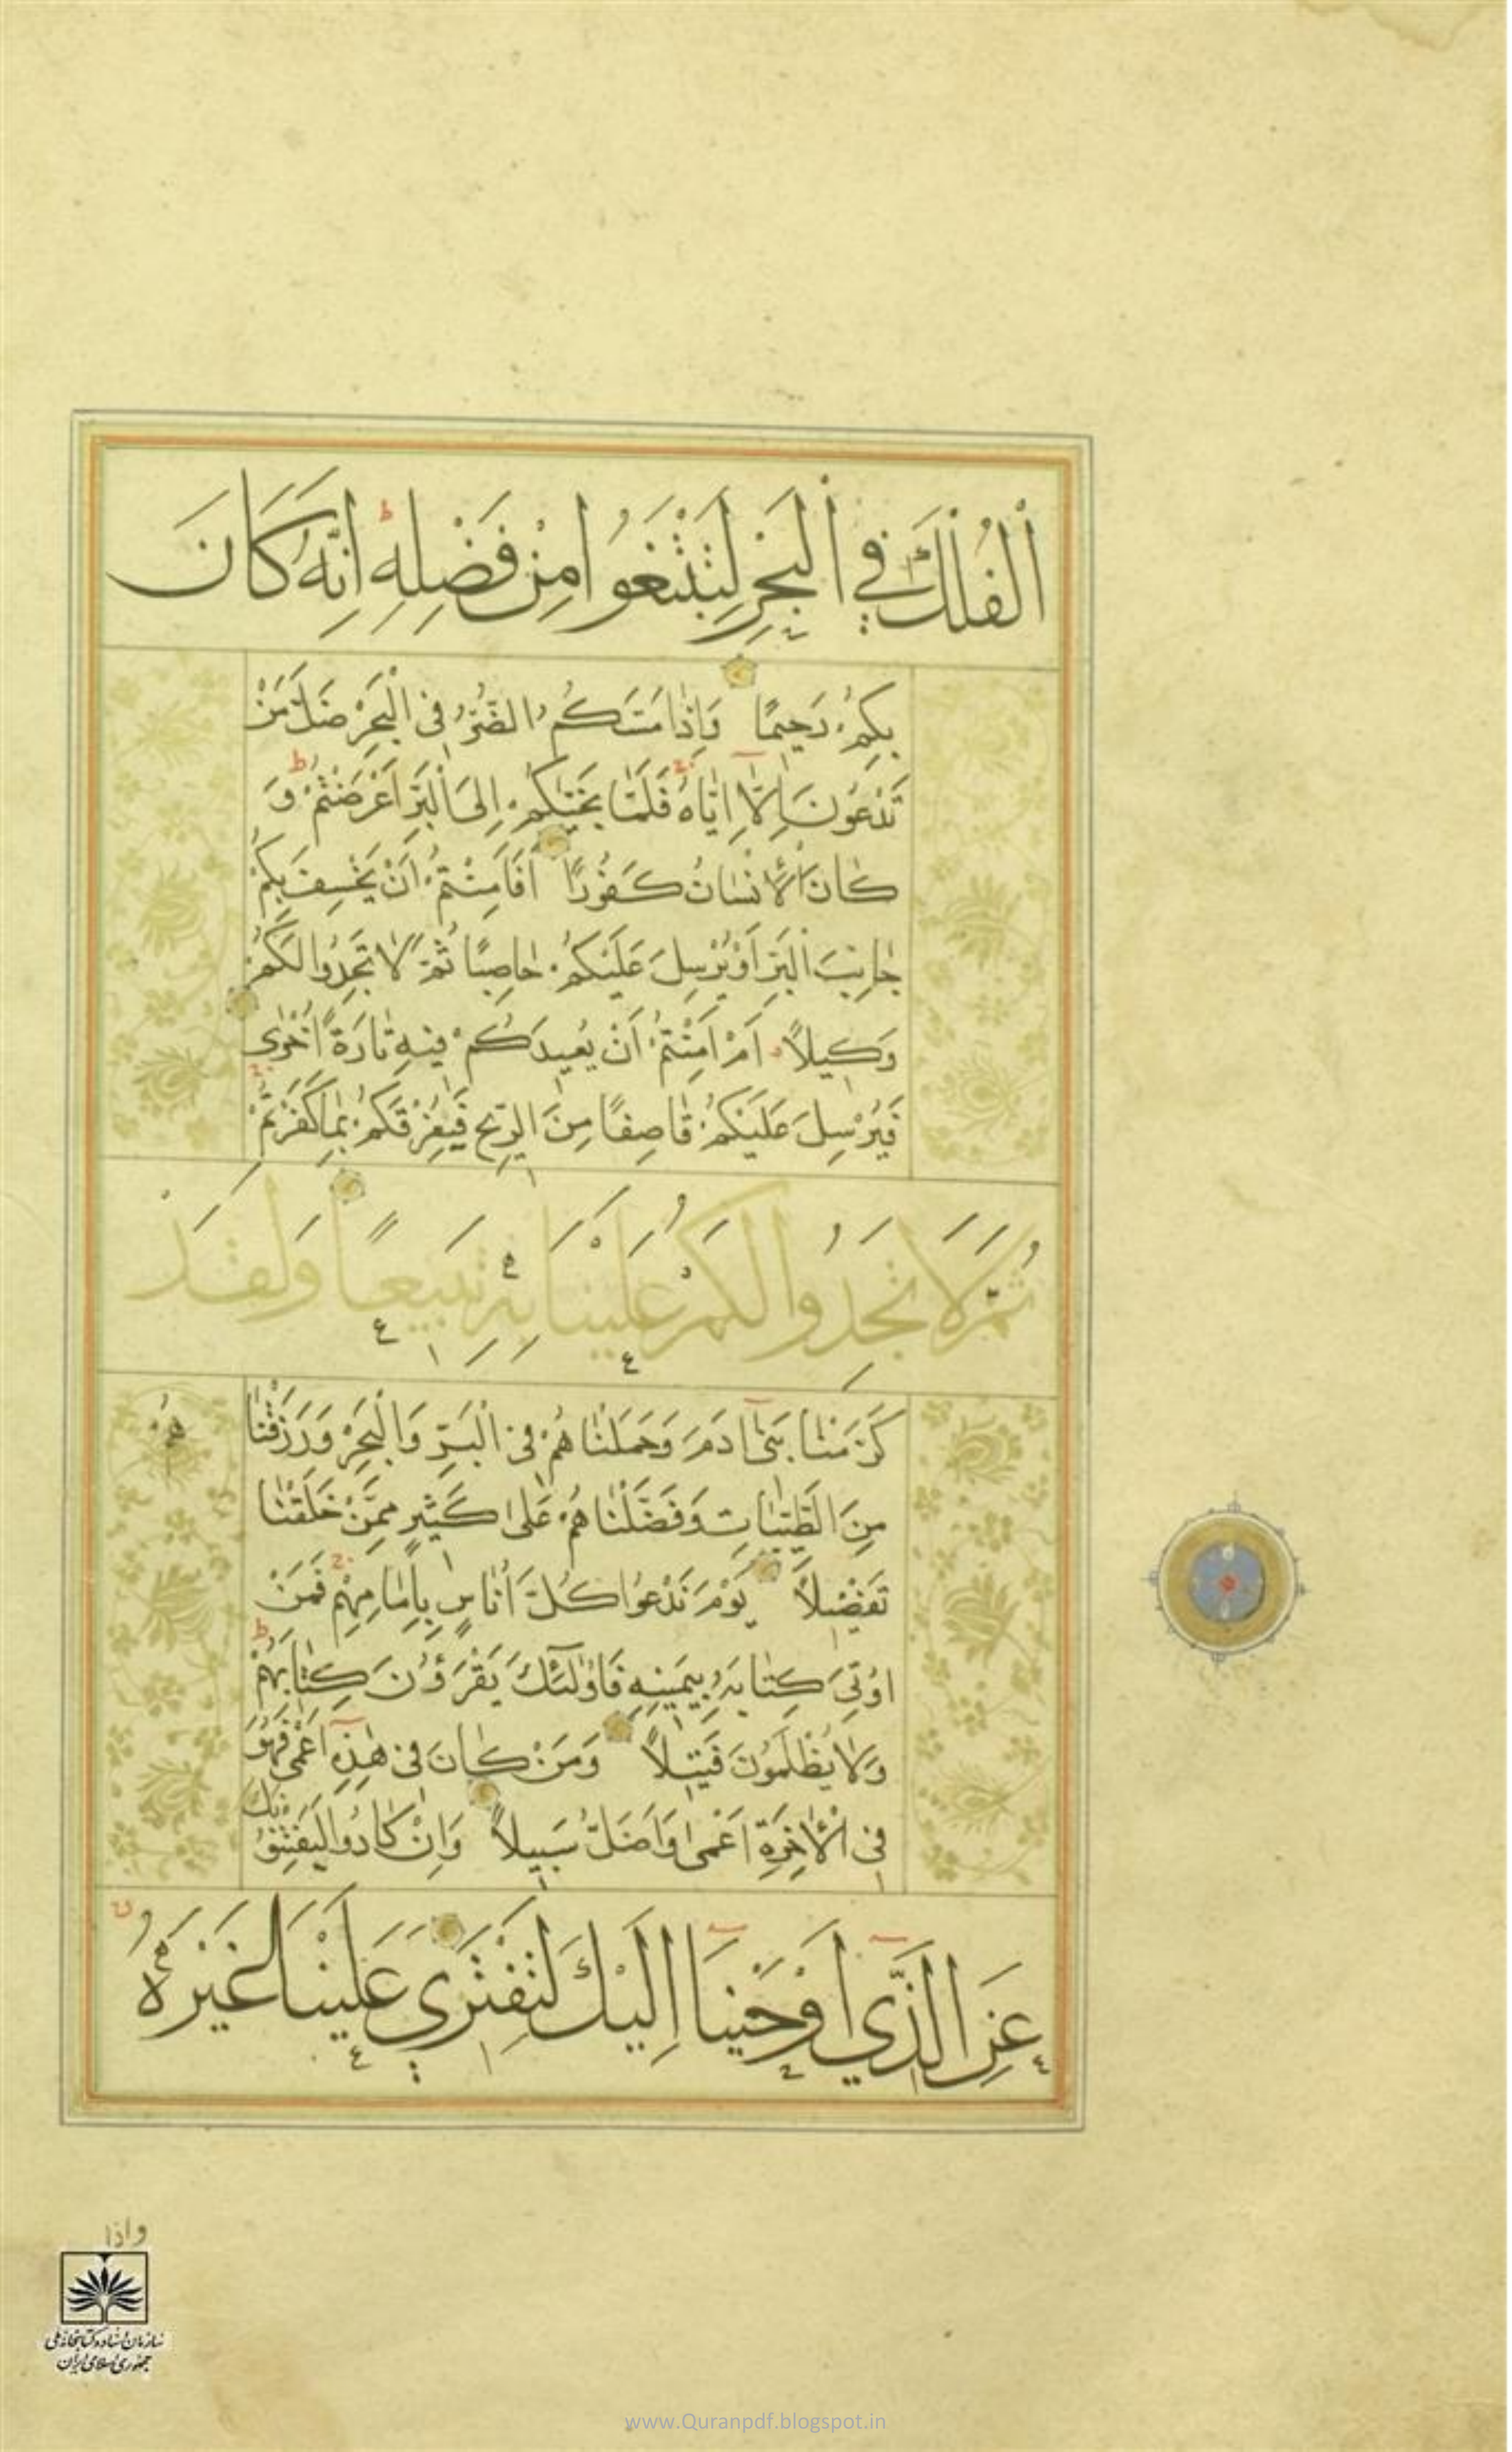 اَلْفُلْكَ فِي الْبَحْرِ لِتَبْتَغُوا مِنْ فَضْلِهِ اِنَّهُ كَانَ
بِكُمْ رَحِيمًا وَاِذَا مَسَّكُمُ الضُّرُّ فِى الْبَحْرِ ضَلَّ مَنْ
تَدْعُونَ اِلَّا اِيَّاهُ فَلَمَّا نَجَّيٰكُمْ اِلَى الْبَرِّ اَعْرَضْتُمْ وَ
كَانَ الْاِنْسَانُ كَفُورًا اَفَاَمِنْتُمْ اَنْ يَخْسِفَ بِكُمْ
جَانِبَ الْبَرِّ اَوْ يُرْسِلَ عَلَيْكُمْ حَاصِبًا ثُمَّ لَا تَجِدُوا لَكُمْ
وَكِيلًا اَمْ اَمِنْتُمْ اَنْ يُعِيدَكُمْ فِيهِ تَارَةً اُخْرٰى
فَيُرْسِلَ عَلَيْكُمْ قَاصِفًا مِنَ الرِّيحِ فَيُغْرِقَكُمْ بِمَا كَفَرْتُمْ
ثُمَّ لَا تَجِدُوا لَكُمْ عَلَيْنَا بِهِ تَبِيعًا وَلَقَدْ
كَرَّمْنَا بَنِى اٰدَمَ وَحَمَلْنَاهُمْ فِى الْبَرِّ وَالْبَحْرِ وَرَزَقْنَا
هُمْ
مِنَ الطَّيِّبَاتِ وَفَضَّلْنَاهُمْ عَلٰى كَثِيرٍ مِمَّنْ خَلَقْنَا
تَفْضِيلًا يَوْمَ نَدْعُوا كُلَّ اُنَاسٍ بِاِمَامِهِمْ فَمَنْ
اُوتِىَ كِتَابَهُ بِيَمِينِهِ فَاُولٰئِكَ يَقْرَؤُنَ كِتَابَهُمْ
وَلَا يُظْلَمُونَ فَتِيلًا وَمَنْ كَانَ فِى هٰذِهِ اَعْمٰى فَهُوَ
فِى الْاٰخِرَةِ اَعْمٰى وَاَضَلُّ سَبِيلًا وَاِنْ كَادُوا لَيَفْتِنُونَكَ
عَنِ الَّذِي اَوْحَيْنَا اِلَيْكَ لِتَفْتَرِيَ عَلَيْنَا غَيْرَهُ
واذا
سازمان اسناد و کتابخانه ملی
جمهوری اسلامی ایران
www.Quranpdf.blogspot.in